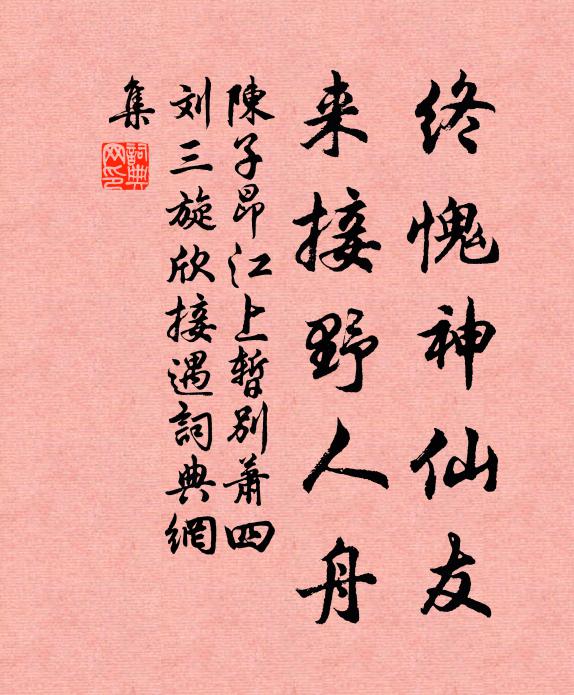 终愧神仙友
来接野人舟
陳子昂江上暫别蕭四
刘三旋欣接遇詞典網
集
詞典
网印